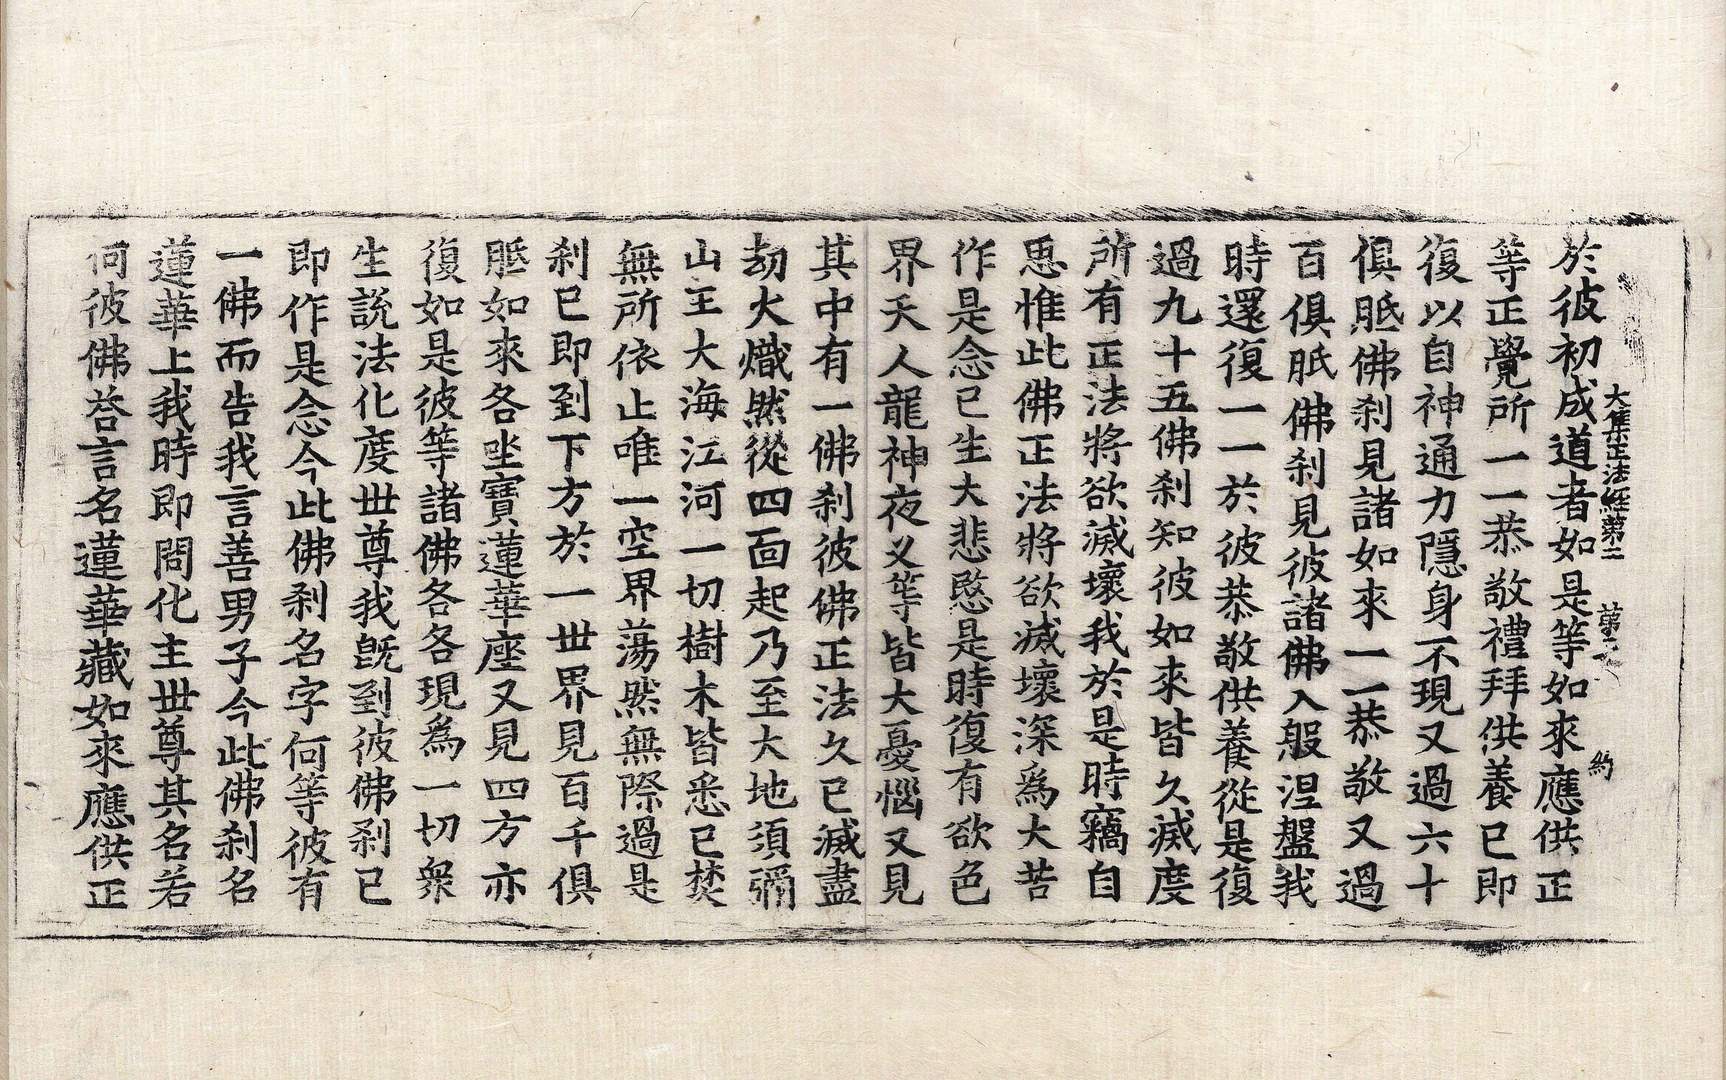 大集正法經第二 第二 約
於彼初成道者如是等如來應供正
等正覺所一一恭敬禮拜供養已即
復以自神通力隱身不現又過六十
俱胝佛刹見諸如來一一恭敬又過
百俱胝佛刹見彼諸佛入般涅盤我
時還復一一於彼恭敬供養從是復
過九十五佛刹知彼如來皆久滅度
所有正法將欲滅壞我於是時竊自
思惟此佛正法將欲滅壞深爲大苦
作是念已生大悲愍是時復有欲色
界天人龍神夜叉等皆大憂惱又見
其中有一佛刹彼佛正法久已滅盡
劫火熾然從四面起乃至大地須彌
山王大海江河一切樹木皆悉已焚
無所依止唯一空界蕩然無際過是
刹已即到下方於一世界見百千俱
胝如來各坐寶蓮華座又見四方亦
復如是彼等諸佛各各現爲一切衆
生說法化度世尊我旣到彼佛刹已
即作是念今此佛刹名字何等彼有
一佛而告我言善男子今此佛刹名
蓮華上我時即問化主世尊其名若
何彼佛荅言名蓮華藏如來應供正